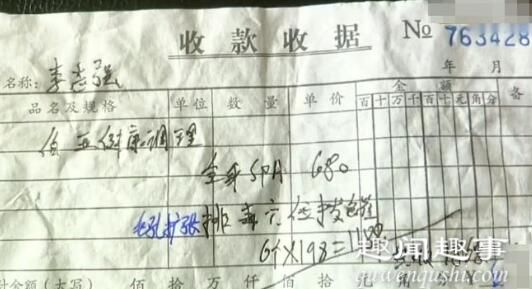 收款收据 № 763428
年 月
名称：李志强
品名及规格 单位 数量 单价 金额 备
百十万千百十元角分
健康调理
全身SPA 680
毛孔扩张 排毒穴位拔罐
6个X198=1188
计金额（大写） 佰 拾 万 仟 佰 拾 元
趣闻趣事
quwenqushi.com